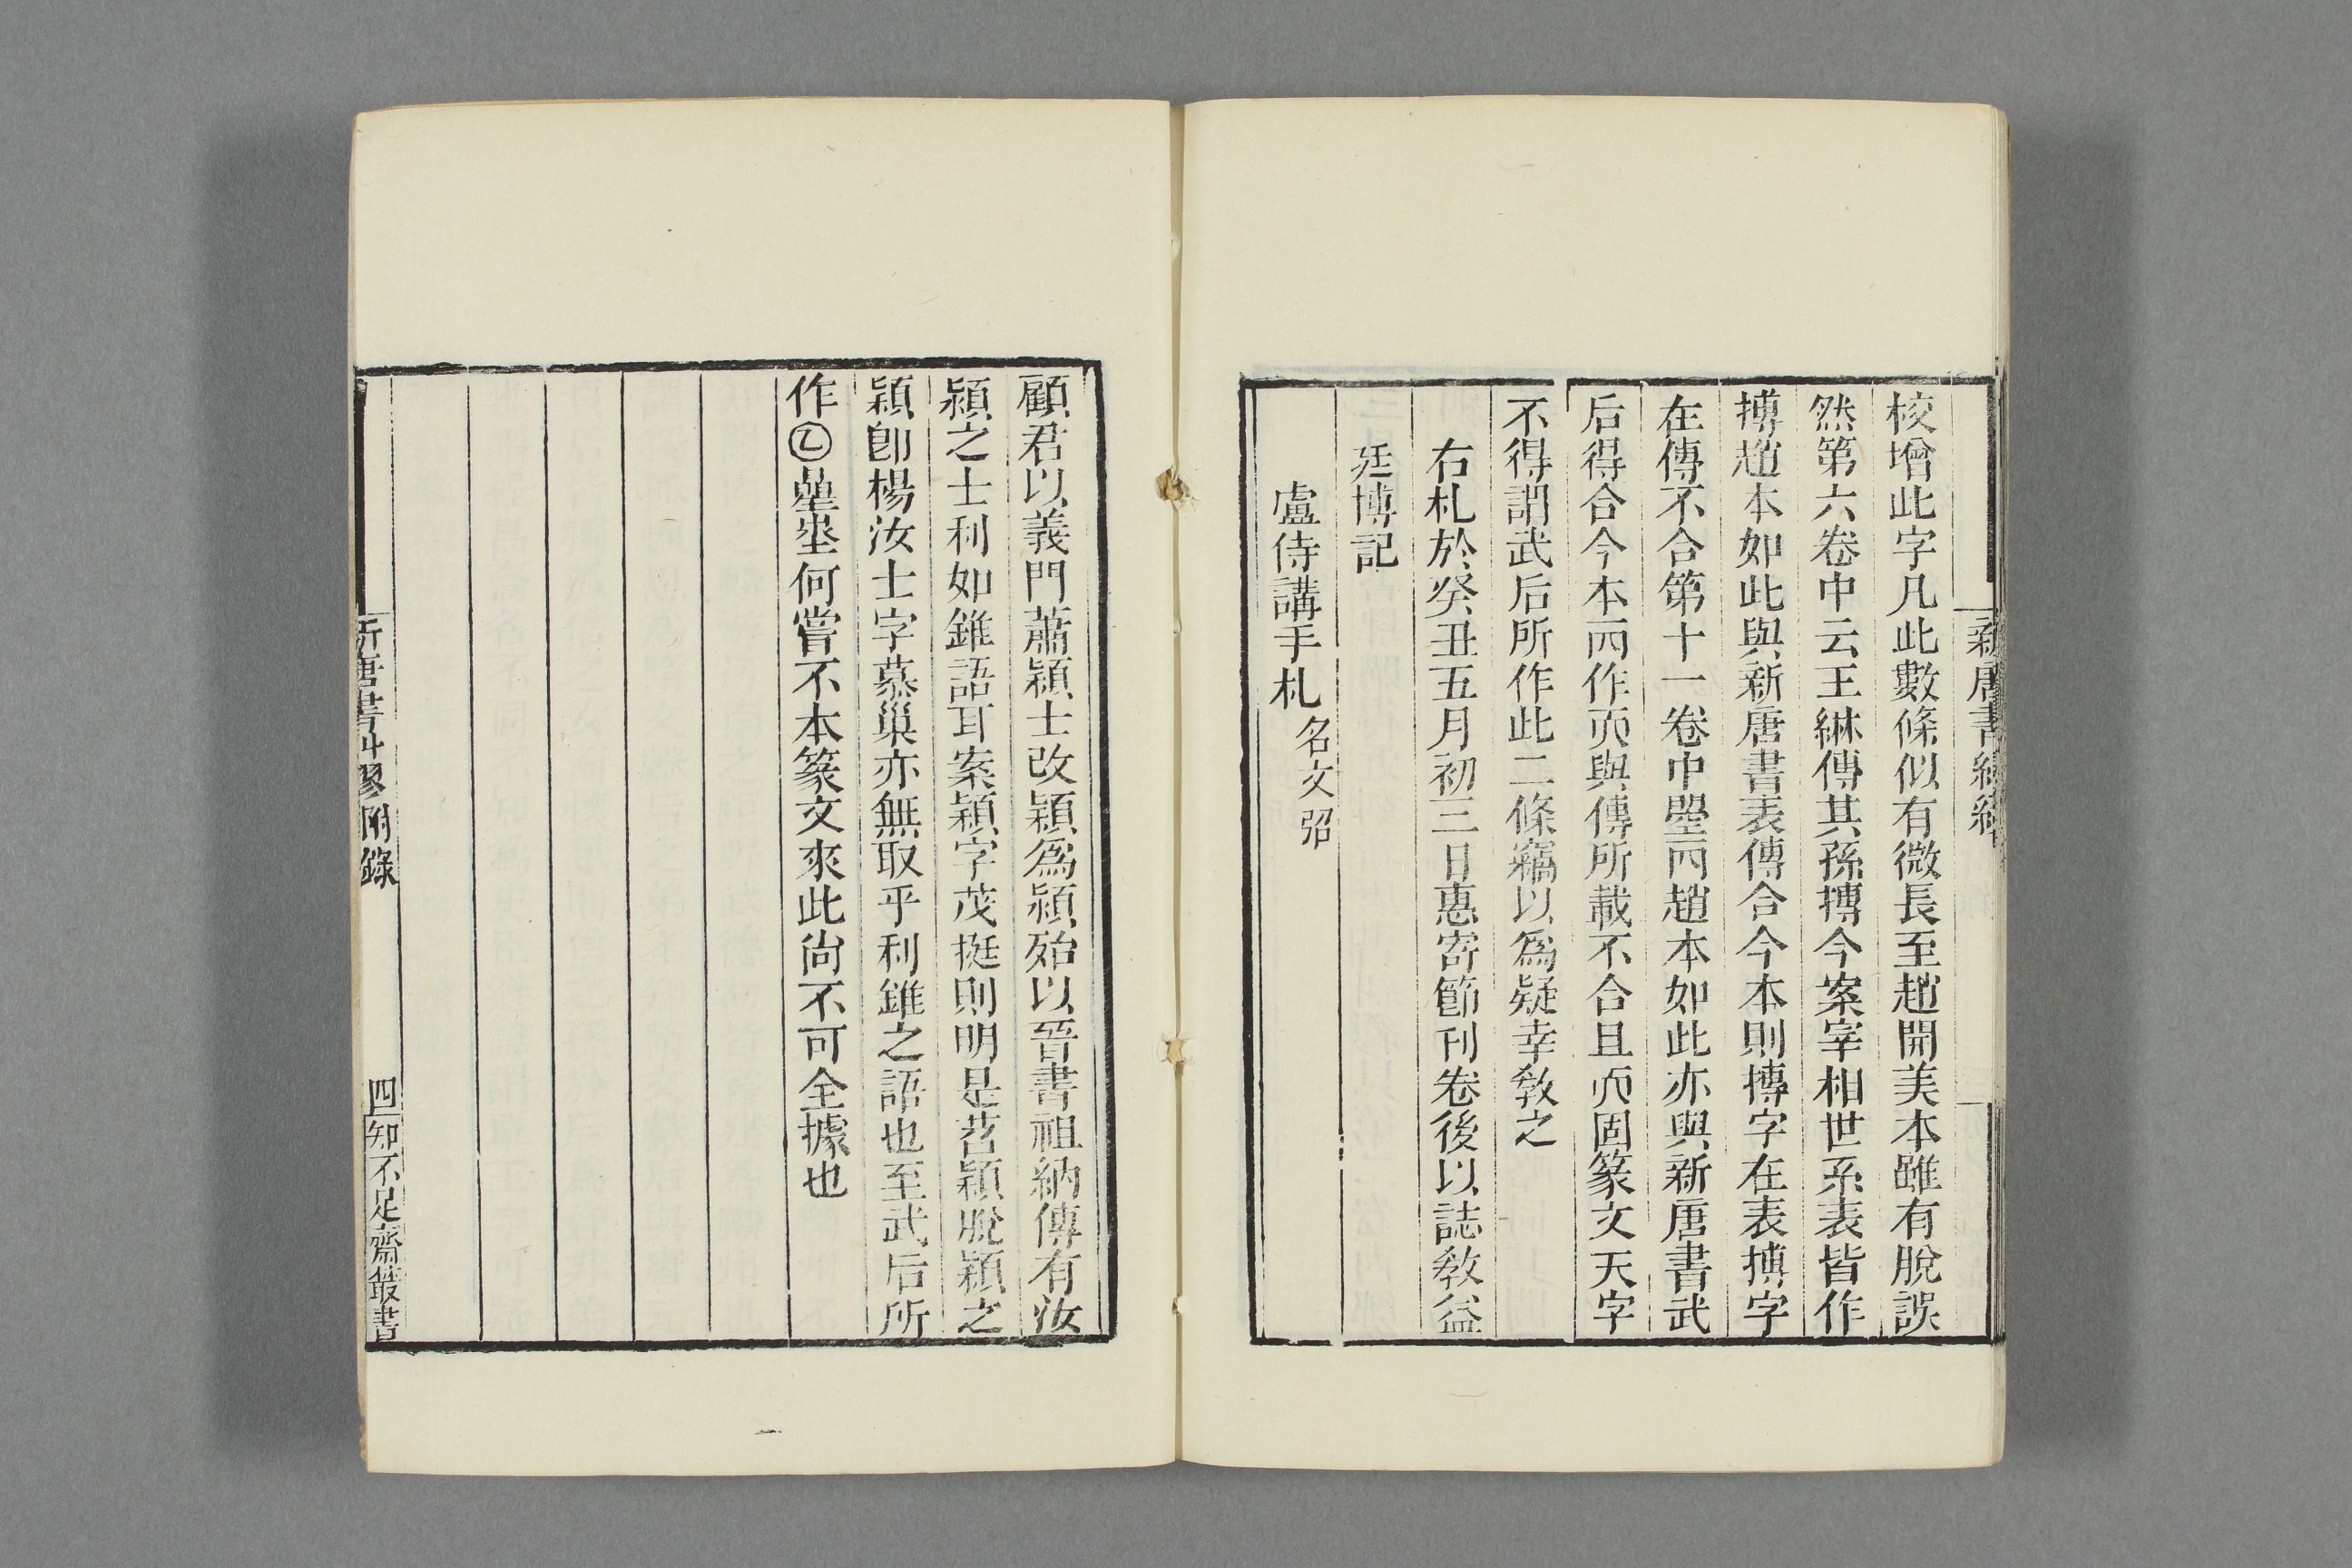 校增此字凡此數條似有微長至趙開美本雖有脫誤
然第六卷中云王綝傳其孫摶今案宰相世系表皆作
搏趙本如此與新唐書表傳合今本則摶字在表搏字
在傳不合第十一卷中曌西趙本如此亦與新唐書武
后得合今本西作而與傳所載不合且而固篆文天字
不得謂武后所作此二條竊以為疑幸教之
右札於癸丑五月初三日惠寄節刊卷後以誌教益
廷博記
盧侍講手札名文弨
顧君以義門蕭穎士改穎為潁殆以晉書祖納傳有汝
潁之士利如錐語耳案穎字茂挺則明是苕穎脫穎之
穎即楊汝士字慕巢亦無取乎利錐之語也至武后所
作何嘗不本篆文來此尚不可全據也
新唐書糾謬附錄
四
知不足齋叢書